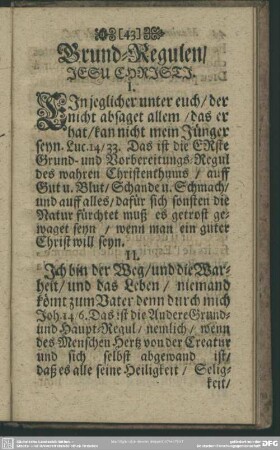 [43]
Grund-Regulen/
JESU CHRISTI.
I.
EIn jeglicher unter euch/ der
nicht absaget allem / das er
hat/ kan nicht mein Jünger
seyn. Luc. 14/ 33. Das ist die ERste
Grund- und Vorbereitungs-Regul
des wahren Christenthums / auff
Gut u. Blut/ Schande u. Schmach/
und auff alles/ dafür sich sonsten die
Natur fürchtet muß es getrost ge-
waget seyn / wenn man ein guter
Christ will seyn.
II.
Ich bin der Weg/ und die War-
heit/ und das Leben / niemand
kömt zum Vater denn durch mich
Joh. 14/6. Das ist die Andere Grund-
und Haupt-Regul/ nemlich/ wenn
des Menschen Hertz von der Creatur
und sich selbst abgewand ist/
daß es alle seine Heiligkeit / Selig-
keit/